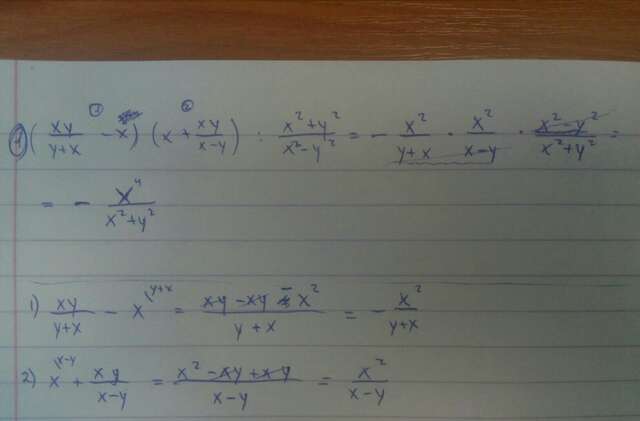 1) (xy/(y+x) - x) (x + xy/(x-y)) : (x²+y²)/(x²-y²) = - x²/(y+x) · x²/(x-y) · (x²-y²)/(x²+y²) =
= - x⁴/(x²+y²)
1) xy/(y+x) - x \y+x = (xy-xy-x²)/(y+x) = - x²/(y+x)
2) x \x-y + xy/(x-y) = (x²-xy+xy)/(x-y) = x²/(x-y)